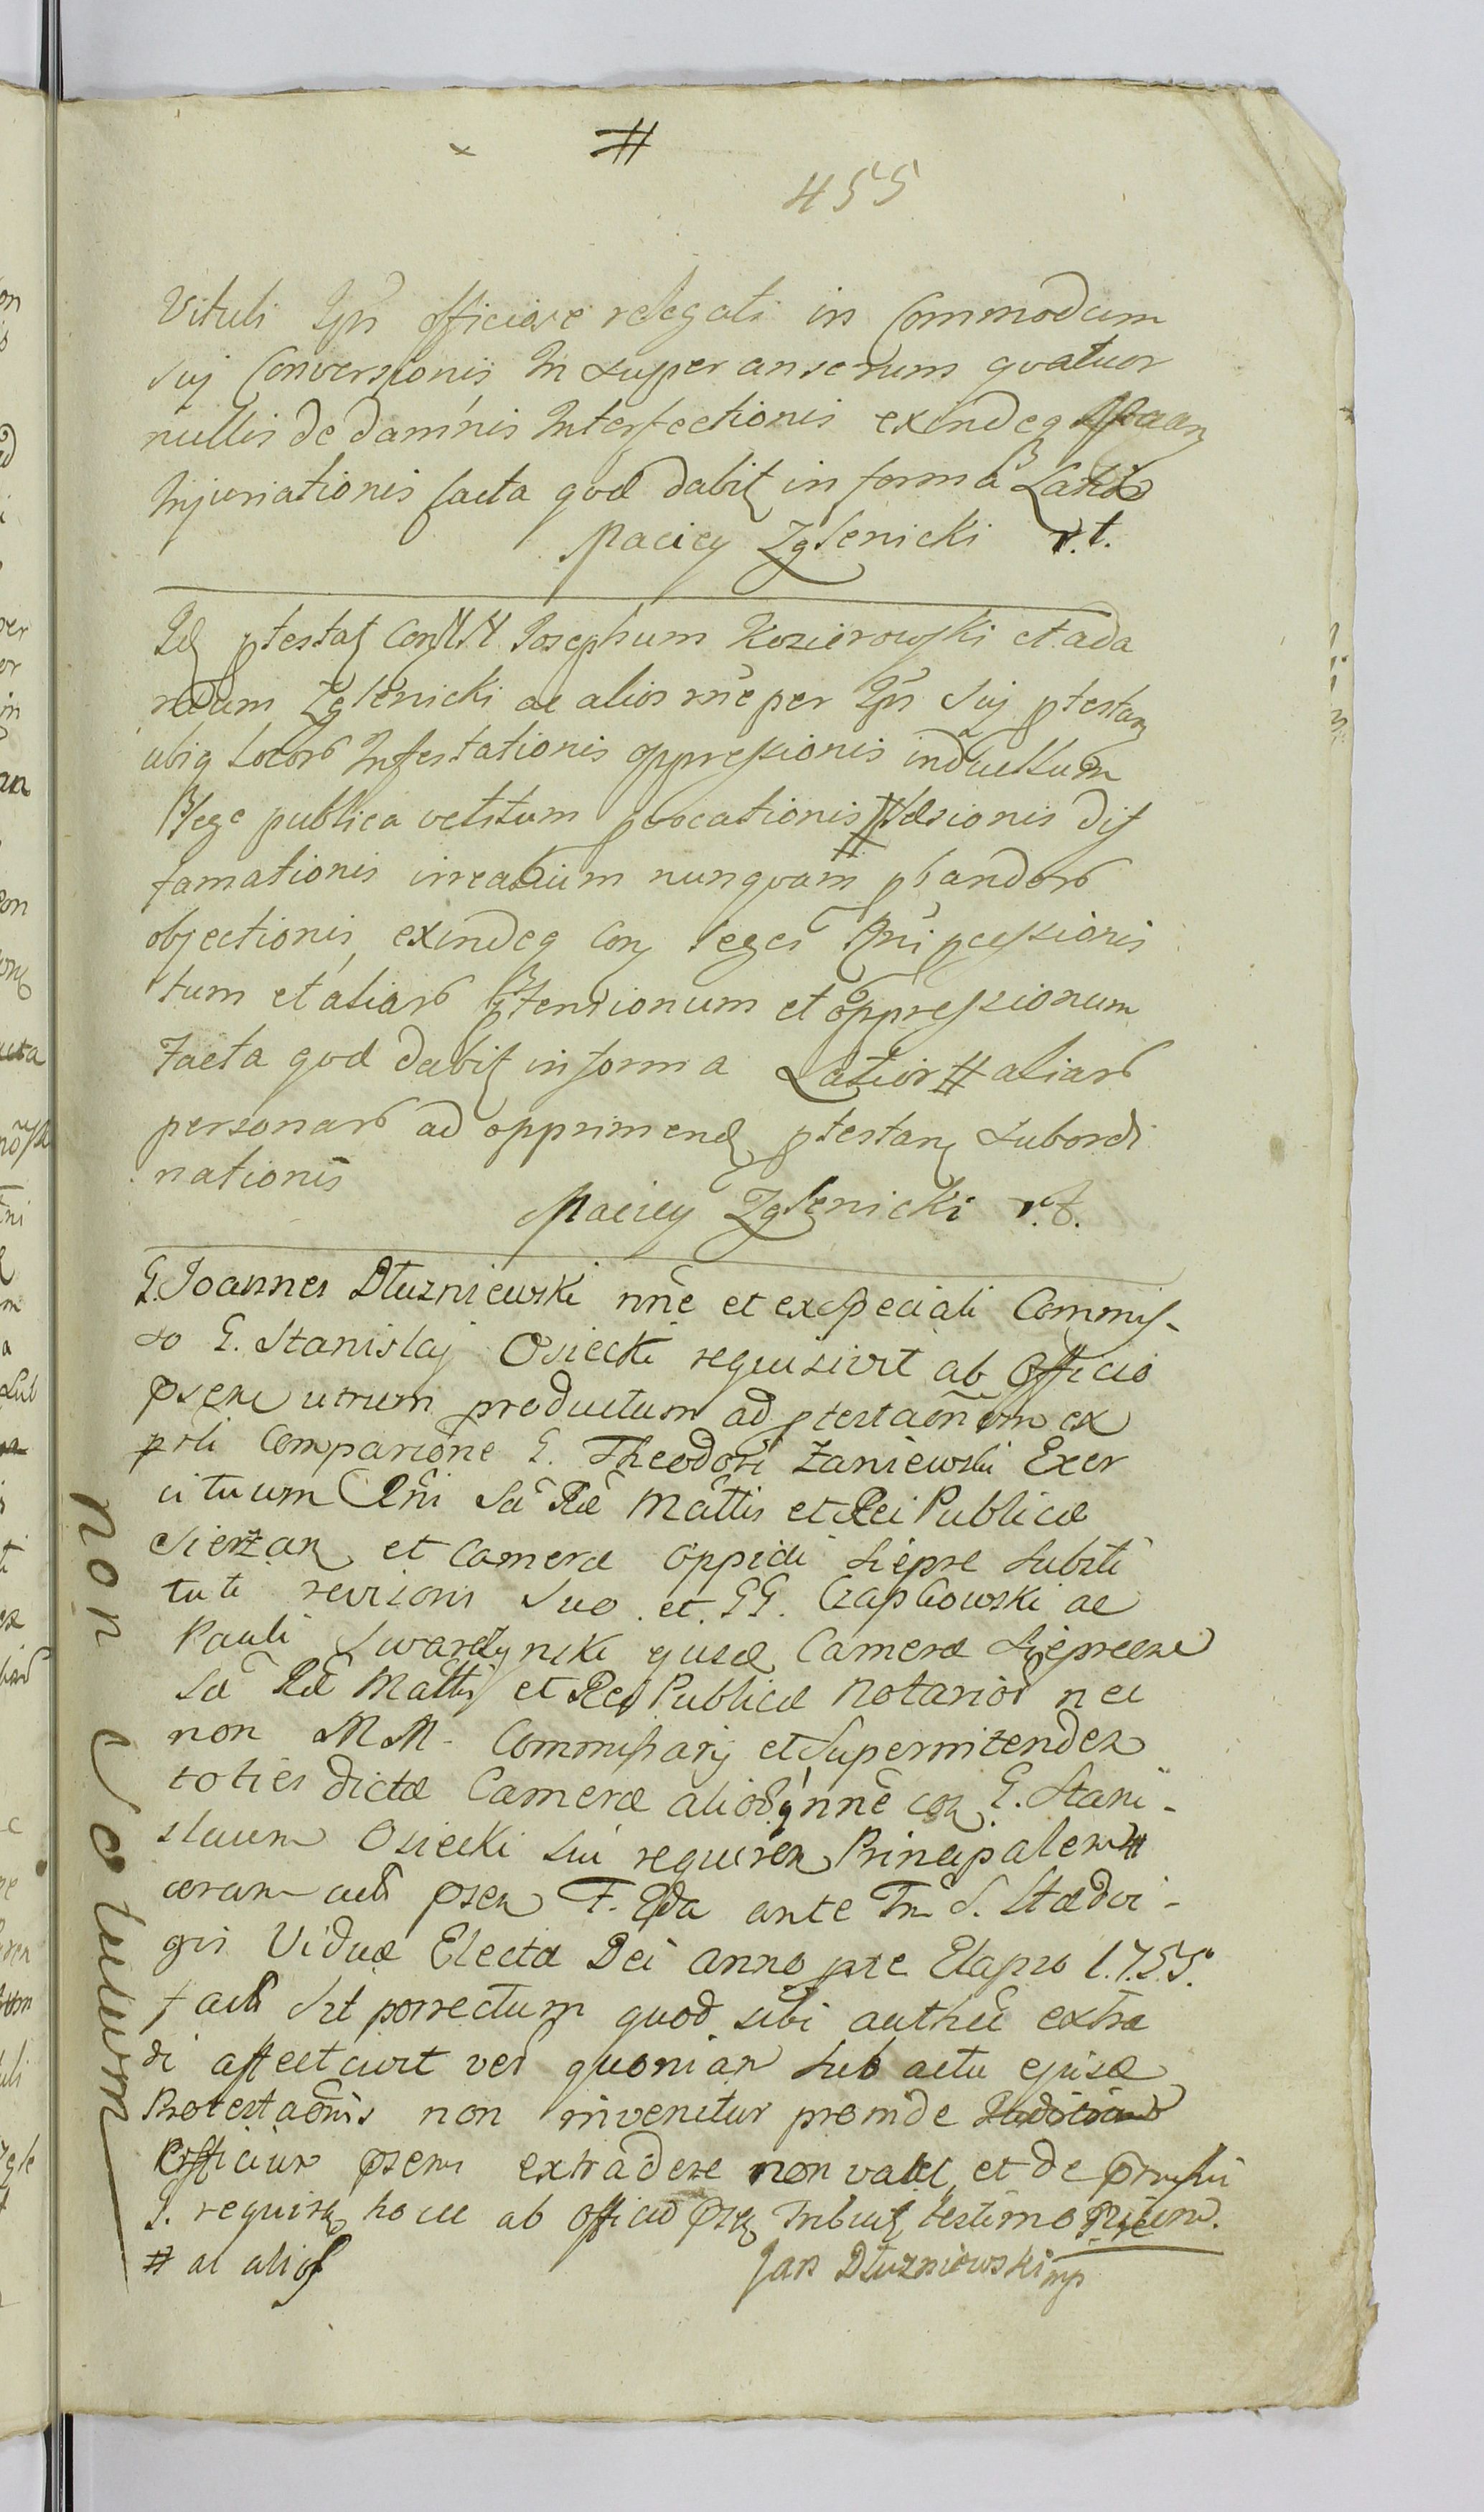 #
455
Vituli Ipn officiose relegati in Commodum
suj Conversionis Insuper anserum qvatuor
nullis de damnis Interfectionis exindeq
Injuriationis facta qvd dabit in forma Lat
Maciey Zglenicki r.t.
Id ptestat Con MM Josephum Kozierowski et ada
mum Zglenicki ac alios nne per Ipn suj ptestan
ubiq locor Infestationis oppressionis induellum
lege publica vetitum pvocationis # dif
famationis irreabium nunqvam pbandor
objectionis, exindeq Con leges Rni pcessionis
tum et aliar ptensionum et oppressionum
Facta qvd dabit in forma Latior # aliar
personar ad opprimend ptestan subordi
nationis
Maciey Zglenicki r.t.
G. Joannes Dluzniewski nne et ex speciali Commis-
so G. Stanislaj Osiecki requisivit ab Officio
psen utrum productum ad ptestaonem ex
psli Comparione G. Theodori Zaniewski Exer
cituum Rni Sae Rae Mattis et Rei Publicae
Sierzan et Camerae oppidi Siepre substi
tuti revisoris suo et GG. Czapkowski ac
Pauli Swardynski ejusd Camerae Sieprcens
Sae Rae Mattis et Rei Publicae Notarior nec
non MM. Commissarij et Superintenden
toties dictae Camerae alior q nne con G. Stani-
slaum Osiecki sui requiren Principalem #
coram actis psen F. ante Fm S. Haedvi-
gis Viduae Electae Dei anno pte Elapso 1.7.5.5.
factu sit porrectum quod sibi authen extra
di affectavit ver quoniam sub actu ejusd
Protestaonis non invenitur proinde
Officium psens extradere non valet, et de
G. requisn hocce ab officio psn Tribuit testimonium.
# ac alios
Jan Dluzniewski mp
non solutum